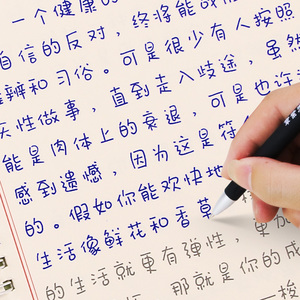 一个健康的
自信的反对，终将能战
辨和习俗。可是很少有人按照
天性做事，直到走入歧途，虽然
能是肉体上的衰退，可是也许
感到遗憾，因为这是符
的。假如你能欢快地
生活像鲜花和香草
的生活就更有弹性，更加
那就是你的成